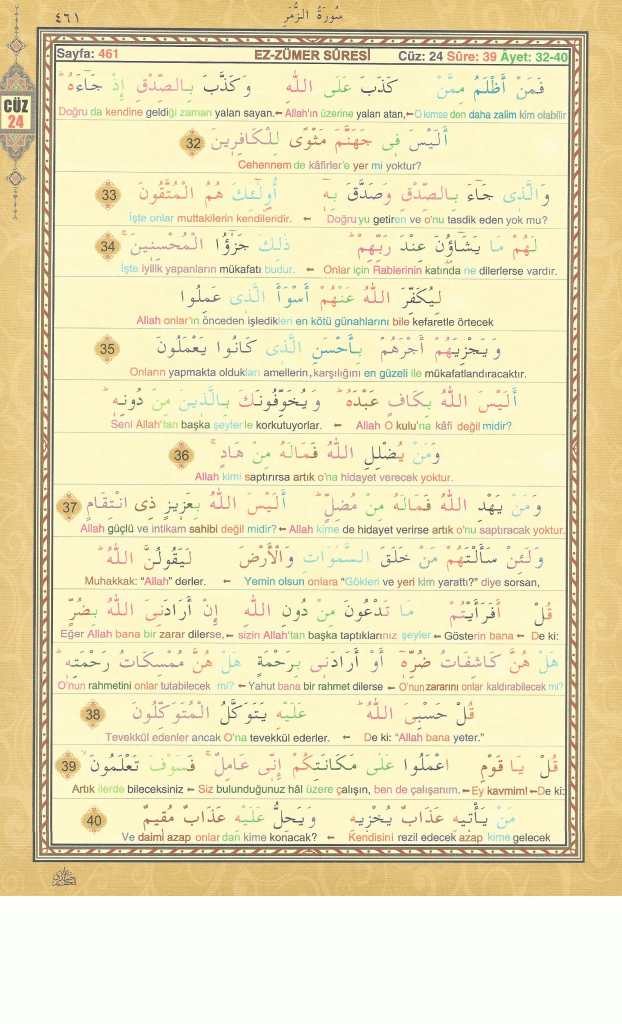 ٤٦١ سُورَةُ الزُّمَرِ
Sayfa: 461 EZ-ZÜMER SÛRESİ Cüz: 24 Sûre: 39 Âyet: 32-40
CÜZ
24
فَمَنْ أَظْلَمُ مِمَّنْ كَذَبَ عَلَى اللّٰهِ وَكَذَّبَ بِالصِّدْقِ إِذْ جَٓاءَهُ ۜ
Doğru da kendine geldiği zaman yalan sayan.← Allah'ın üzerine yalan atan,← O kimse den daha zalim kim olabilir
أَلَيْسَ فِى جَهَنَّمَ مَثْوًى لِلْكَافِرِينَ 32
Cehennem de kâfirler'e yer mi yoktur?
وَالَّذِى جَٓاءَ بِالصِّدْقِ وَصَدَّقَ بِهِٓ أُولٰٓئِكَ هُمُ الْمُتَّقُونَ 33
İşte onlar muttakilerin kendileridir. ← Doğru yu getiren ve o'nu tasdik eden yok mu?
لَهُمْ مَا يَشَٓاؤُنَ عِنْدَ رَبِّهِمْ ۜ ذٰلِكَ جَزٰٓؤُا الْمُحْسِنِينَ ۚ 34
İşte iyilik yapanların mükafatı budur. ← Onlar için Rablerinin katında ne dilerlerse vardır.
لِيُكَفِّرَ اللّٰهُ عَنْهُمْ أَسْوَأَ الَّذِى عَمِلُوا
Allah onlar'ın önceden işledikleri en kötü günahlarını bile kefaretle örtecek
وَيَجْزِيَهُمْ أَجْرَهُمْ بِأَحْسَنِ الَّذِى كَانُوا يَعْمَلُونَ 35
Onların yapmakta oldukları amellerin, karşılığını en güzeli ile mükafatlandıracaktır.
أَلَيْسَ اللّٰهُ بِكَافٍ عَبْدَهُ ۜ وَيُخَوِّفُونَكَ بِالَّذِينَ مِنْ دُونِهِ ۜ
Seni Allah'tan başka şeyler le korkutuyorlar. ← Allah O kulu'na kâfi değil midir?
وَمَنْ يُضْلِلِ اللّٰهُ فَمَالَهُ مِنْ هَادٍ ۚ 36
Allah kimi saptırırsa artık o'na hidayet verecek yoktur.
وَمَنْ يَهْدِ اللّٰهُ فَمَالَهُ مِنْ مُضِلٍّ ۜ أَلَيْسَ اللّٰهُ بِعَزِيزٍ ذِى انْتِقَامٍ 37
Allah güçlü ve intikam sahibi değil midir? ← Allah kime de hidayet verirse artık o'nu saptıracak yoktur.
وَلَئِنْ سَأَلْتَهُمْ مَنْ خَلَقَ السَّمٰوَاتِ وَالْأَرْضَ لَيَقُولُنَّ اللّٰهُ ۜ
Muhakkak: “Allah” derler. ← Yemin olsun onlara “Gökleri ve yeri kim yarattı?” diye sorsan,
قُلْ أَفَرَأَيْتُمْ مَا تَدْعُونَ مِنْ دُونِ اللّٰهِ إِنْ أَرَادَنِىَ اللّٰهُ بِضُرٍّ
Eğer Allah bana bir zarar dilerse,← sizin Allah'tan başka taptıklarınız şeyler ← Gösterin bana ← De ki:
هَلْ هُنَّ كَاشِفَاتُ ضُرِّهِٓ أَوْ أَرَادَنِى بِرَحْمَةٍ هَلْ هُنَّ مُمْسِكَاتُ رَحْمَتِهِ ۜ
O'nun rahmetini onlar tutabilecek mi? ← Yahut bana bir rahmet dilerse ← O'nun zararını onlar kaldırabilecek mi?
قُلْ حَسْبِىَ اللّٰهُ ۜ عَلَيْهِ يَتَوَكَّلُ الْمُتَوَكِّلُونَ 38
Tevekkül edenler ancak O'na tevekkül ederler. ← De ki: “Allah bana yeter.”
قُلْ يَا قَوْمِ اعْمَلُوا عَلٰى مَكَانَتِكُمْ إِنِّى عَامِلٌ ۚ فَسَوْفَ تَعْلَمُونَ ۙ 39
Artık ilerde bileceksiniz ← Siz bulunduğunuz hâl üzere çalışın, ben de çalışanım. ← Ey kavmim! ←De ki:
مَنْ يَأْتِيهِ عَذَابٌ يُخْزِيهِ وَيَحِلُّ عَلَيْهِ عَذَابٌ مُقِيمٌ 40
Ve daimi azap onlar dan kime konacak? ← Kendisini rezil edecek azap kime gelecek